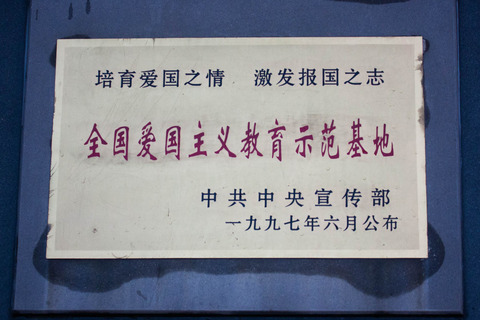 培育爱国之情 激发报国之志
全国爱国主义教育示范基地
中共中央宣传部
一九九七年六月公布